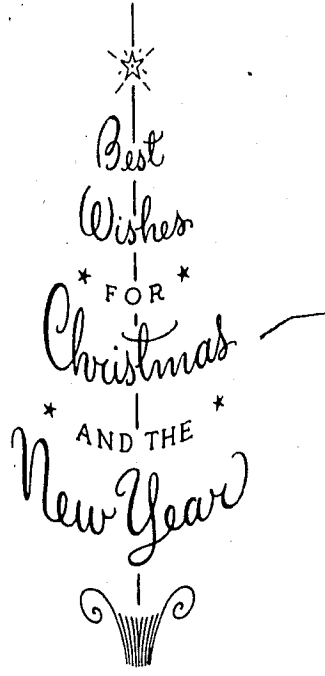 Best
Wishes
FOR
Christmas
AND THE
New Year